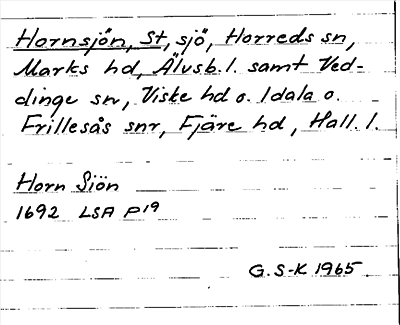 Hornsjön, St, sjö, Horreds sn,
Marks hd, Älvsb. l. samt Ved-
dinge sn, Viske hd o. Idala o.
Frillesås snr, Fjäre hd, Hall. l.
Horn Siön
1692 LSA P19
G. S-K 1965.